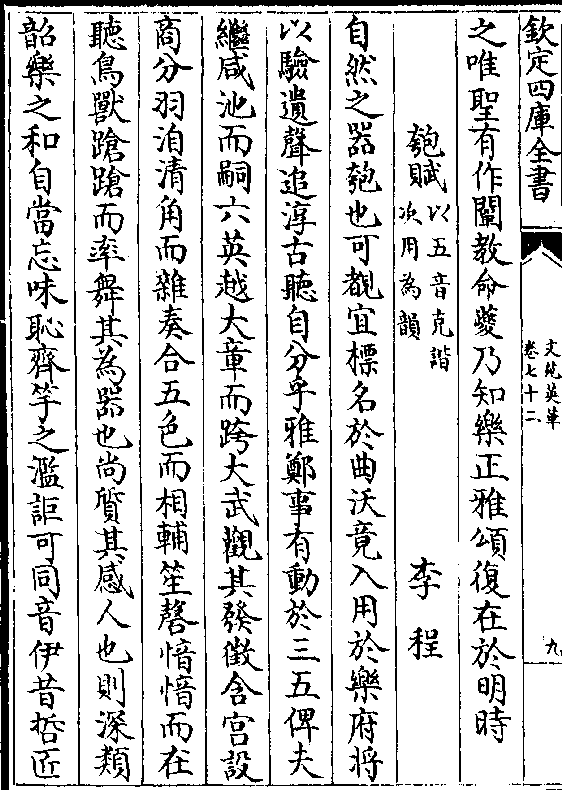 欽定四庫全書
文苑英華
卷七十二
九
之唯聖有作闡教命夔乃知樂正雅頌復在於明時
匏賦以五音克諧
次用為韻
李程
自然之器匏也可觀宜標名於曲沃竟入用於樂府將
以驗遺聲追淳古聽自分乎雅鄭事有動於三五俾夫
繼咸池而嗣六英越大章而跨大武觀其發徵含宮設
商分羽洎清角而雜奏合五色而相輔笙磬愔愔而在
聽鳥獸蹌蹌而率舞其為器也尚質其感人也則深類
韶樂之和自當忘味恥齊竽之濫詎可同音伊昔哲匠